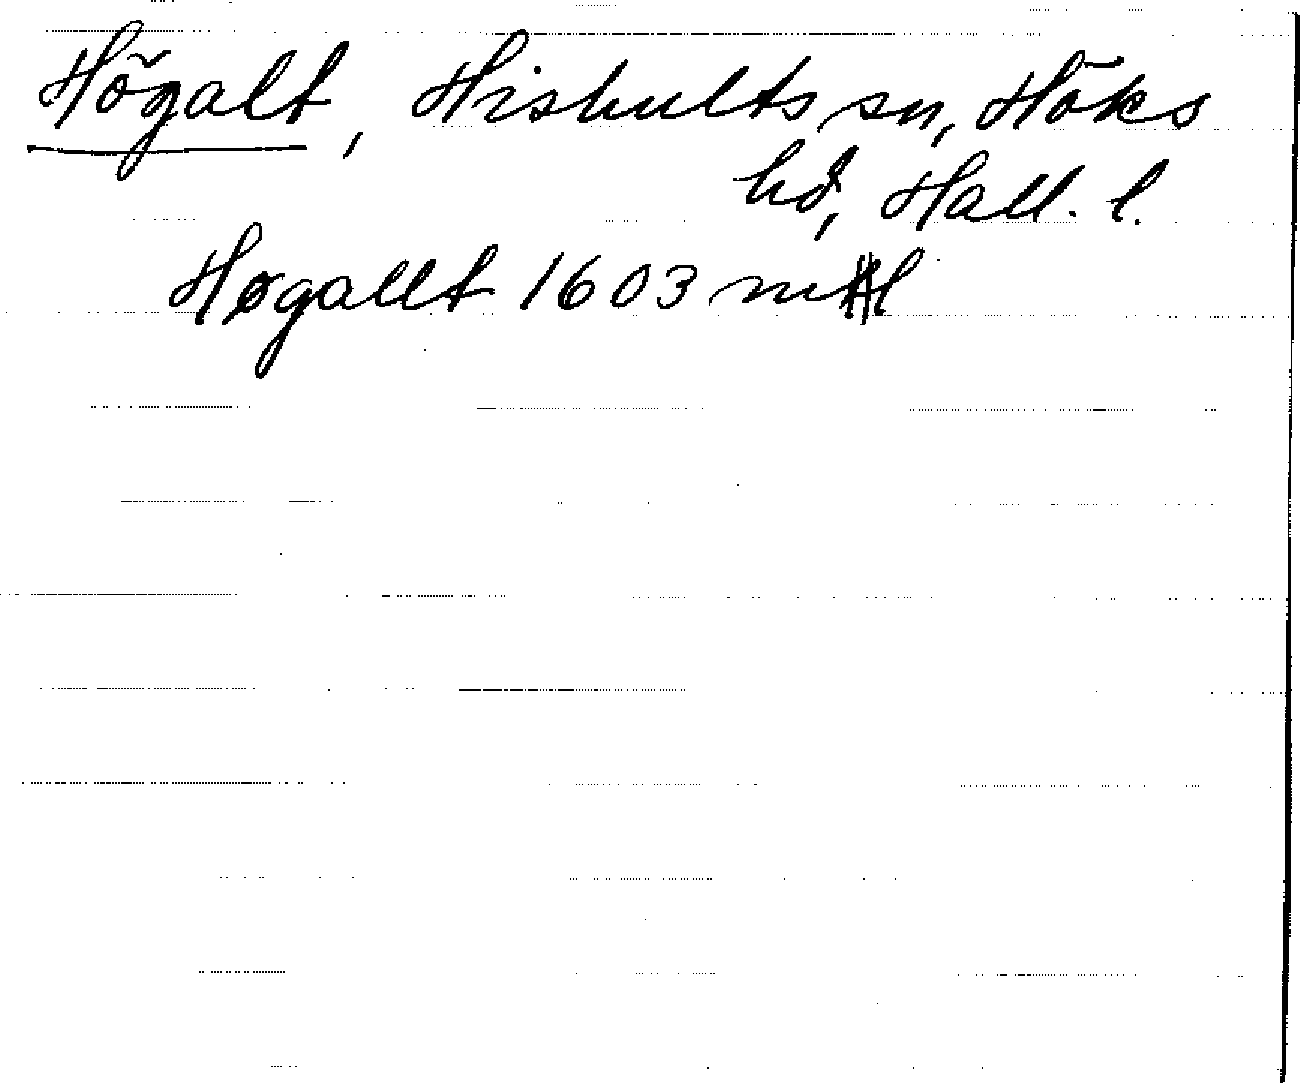 Högalt, Hishults sn, Höks
hd, Hall. l.
Høgallt 1603 mtl